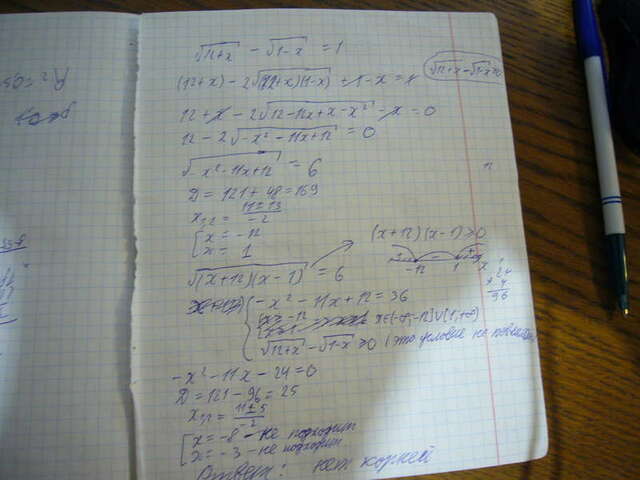 √12+x − √1−x = 1
(12+x) − 2√(12+x)(1−x) + 1−x = 1
√12+x − √1−x ≥0
12 + x − 2√12−12x+x−x² − x = 0
12 − 2√−x²−11x+12 = 0
√−x²−11x+12 = 6
D = 121 + 48 = 169
x₁,₂ = 11±13 / −2
[ x = −12
x = 1
(x+12)(x−1) ≥ 0
−12 1 x
√(x+12)(x−1) = 6
24
4
96
−x²−11x+12 = 36
x∈(−∞;−12]∪[1;+∞)
√12+x − √1−x ≥0 (это условие не
−x²−11x−24=0
D = 121 − 96 = 25
x₁,₂ = 11±5 / −2
[ x = −8 − не подходит
x = −3 − не подходит
Ответ: нет корней